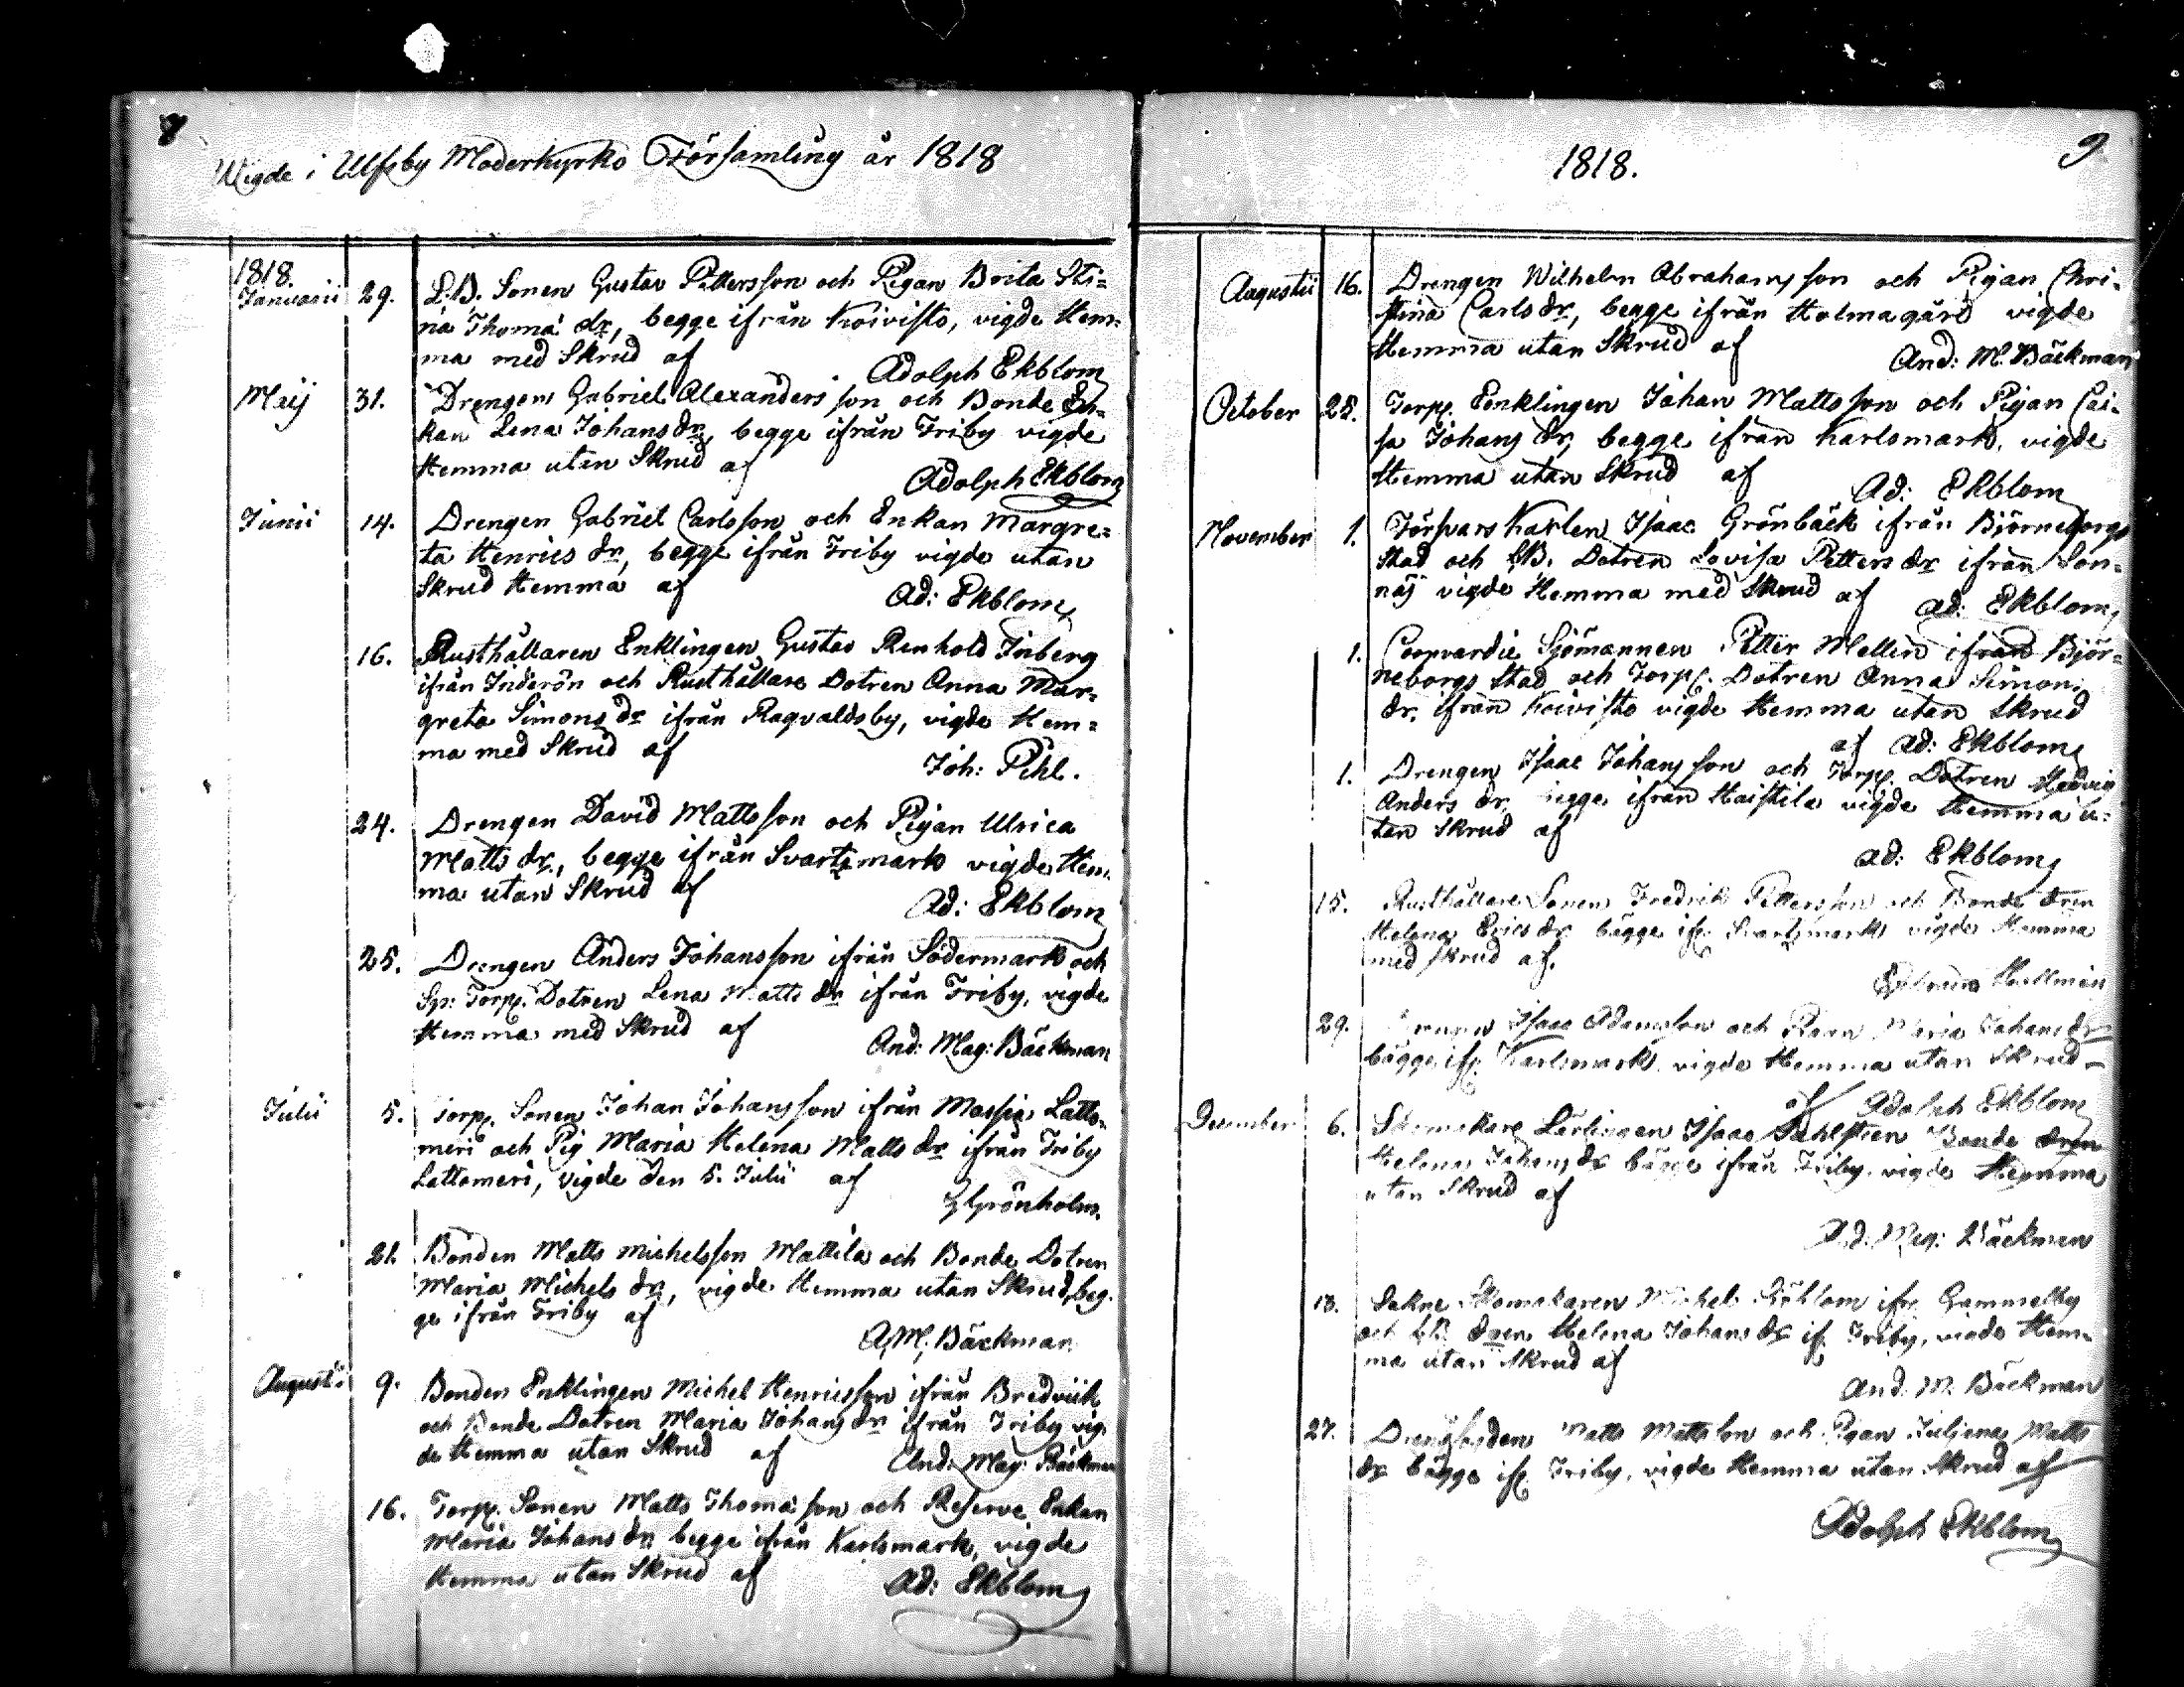 8
Wigde i Ulfsby Moderkyrko Församling år 1818
1818.
Januarii 29. L:B. Sonen Gustav Pettersson och Pigan Brita Sti=
na Thomæ dr, begge ifrån Koivisto, vigde Hem=
ma med Skrud af
Adolph Ekblom
Maij 31. Drengen Gabriel Alexandersson och Bonde En=
kan Lena Johans dr, begge ifrån Friby vigde
Hemma utan Skrud af
Adolph Ekblom
Junii 14. Drengen Gabriel Carlsson och Enkan Margre=
ta Henrics dr, begge ifrån Friby vigde utan
Skrud Hemma af
Ad: Ekblom
16. Rusthållaren Enklingen Gustav Renhold Inberg
ifrån Inderön och Rusthållare Dotren Anna Mar=
greta Simons dr ifrån Ragvaldsby, vigde Hem=
ma med Skrud af
Joh: Pihl.
24. Drengen David Mattsson och Pigan Ulrica
Matts dr, begge ifrån Svartsmark vigde Hem=
ma utan Skrud af
Ad: Ekblom
25. Drengen Anders Johansson ifrån Södermark och
Sp: Torp. Dotren Lena Matts dr ifrån Friby, vigde
Hemma med Skrud af
And: Mag: Bäckman
Julii 5. Torp. Sonen Johan Johansson ifrån Massia Latto=
meri och Pig Maria Helena Matts dr ifrån Friby
Lattomeri, vigde den 5. Julii af
Grönholm.
21. Bonden Matts Michelsson Mattila och Bonde Dotren
Maria Michels dr, vigde Hemma utan Skrud, beg=
ge ifrån Friby af
A: M: Bäckman
Augusti 9. Bonden Enklingen Michel Henricsson ifrån Bredviik
och Bonde Dotren Maria Johans dr ifrån Friby vig=
de Hemma utan Skrud af
And: Mag: Bäckman
16. Torp. Sonen Matts Thomæson och Reserve Enkan
Maria Johans dr begge ifrån Karlsmark, vigde
Hemma utan Skrud af
Ad: Ekblom
9
1818.
Augustii 16. Drengen Wilhelm Abrahamsson och Pigan Chri=
stina Carls dr, begge ifrån Holmagård vigde
Hemma utan Skrud af
And: M. Bäckman
October 25. Torp. Enklingen Johan Mattsson och Pigan Cai=
sa Johans dr, begge ifrån Karlsmark, vigde
Hemma utan Skrud af
Ad: Ekblom
November 1. Försvars Karlen Isaac Grönbäck ifrån Björneborgs
Stad och LB. Dotren Lovisa Petters dr ifrån Son=
näs vigde Hemma med Skrud af
Ad: Ekblom
1. Coopvardie Sjömannen Petter Mellin ifrån Björ=
neborgs Stad och Torp. Dotren Anna Simons
dr. ifrån Koivisto vigde Hemma utan Skrud
af Ad: Ekblom
1. Drengen Isaac Johansson och Torp. Dotren Hedvig
Anders dr. begge ifrån Haistila vigde Hemma u=
tan Skrud af
Ad: Ekblom
15. Rusthållare Sonen Fredrik Pettersson och Bonde dren
Helena Erics dr bägge ifr. Svartsmark vigde Hemma
med Skrud af
Hallmén
29. Drengen Isaac Adamsson och Pigan Maria Johans dr
bägge ifr. Karlsmark. vigde Hemma utan Skrud
af Adolph Ekblom
December 6. Skomakare Lärlingen Isaac Bonde dren
Helena Johans dr bägge ifrån Friby. vigde Hemma
utan Skrud af
And. Mag: Bäckman
13. Sokne Skomakaren Michel ifr. Gammelby
och LB. dren Helena Johans dr if. Friby, vigde Hem=
ma utan Skrud af
And. M. Bäckman
27. Matts Mattsson och Pigan Juliana Matts
dr bägge ifr. Friby, vigde Hemma utan Skrud af
Adolph Ekblom